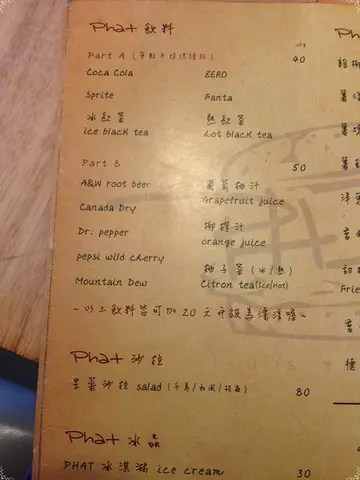 Phat 飲料
Part A (單點不提供續杯) 40
Coca Cola ZERO
Sprite Fanta
冰紅茶 熱紅茶
ice black tea hot black tea
Part B 50
A&W root beer 葡萄柚汁
Grapefruit juice
Canada Dry
Dr. pepper 柳橙汁
orange juice
pepsi wild cherry 柚子茶 (冰/熱)
Mountain Dew Citron tea(Ice/Hot)
~以上飲料皆可加 20 元升級為漂浮~
Phat 沙拉
生菜沙拉 salad (千島/和風/) 80
Phat 冰品
PHAT 冰淇淋 ice cream 30